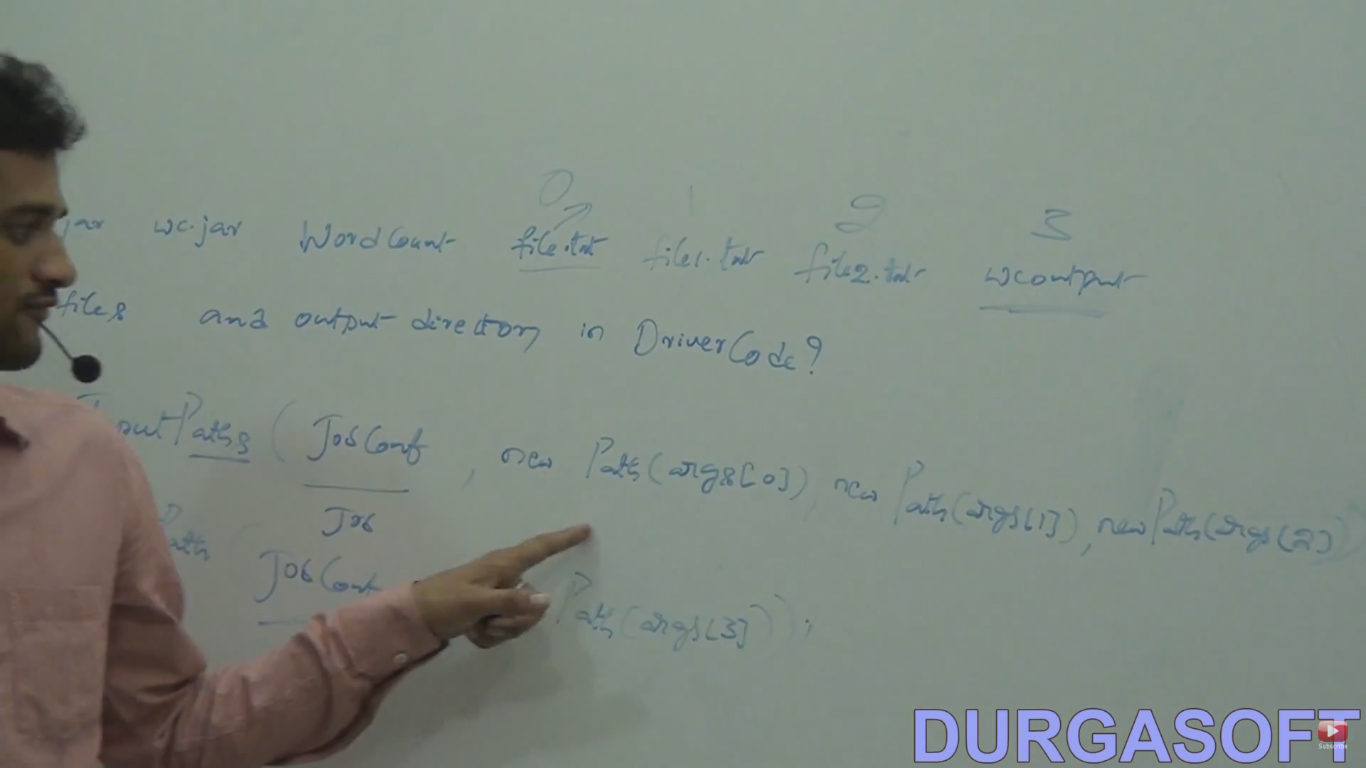 0 1 2 3
jar wc.jar WordCount file.txt file1.txt file2.txt wcoutput
files and output directory in DriverCode?
InputPaths ( JobConf , new Path(args[0]) , new Path(args[1]) , new Path(args[2])
Job
Path ( JobConf Path(args[3]) ) ;
DURGASOFT
Subscribe